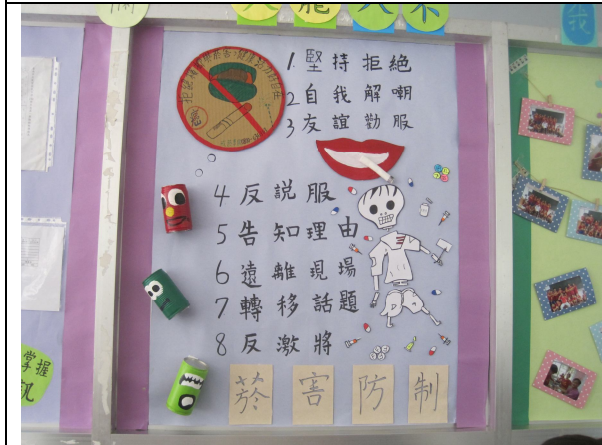 1. 堅持拒絕
2 自我解嘲
3 友誼勸服
4 反說服
5 告知理由
6 遠離現場
7 轉移話題
8 反激將
菸害防制
掌握
我